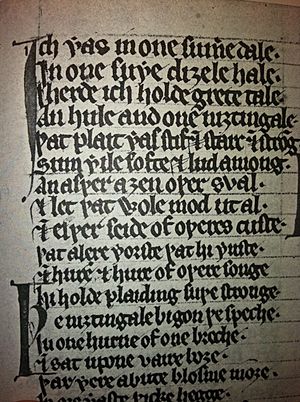 Ich ƿas in one sum̄e dale.
In one suþe diȝele hale.
Iherde ich holde grete tale.
An hule and one niȝtingale.
Þat plait ƿas stif ⁊ starc ⁊ strōg.
Sum ƿile softe ⁊ lud among.
An aþer aȝen oþer sval.
⁊ let þat vole mod ut al.
⁊ eiþer seide of oþeres custe.
Þat alere ƿorste þat hi ƿuste.
⁊ hure ⁊ hure of oþere songe
Hi holde plaiding suþe stronge.
Þe niȝtingale bigon þe speche.
In one hurne of one breche.
⁊ sat upone vaire boȝe.
Þar ƿere abute blosme inoȝe.
In ore ƿaste þicke hegge.